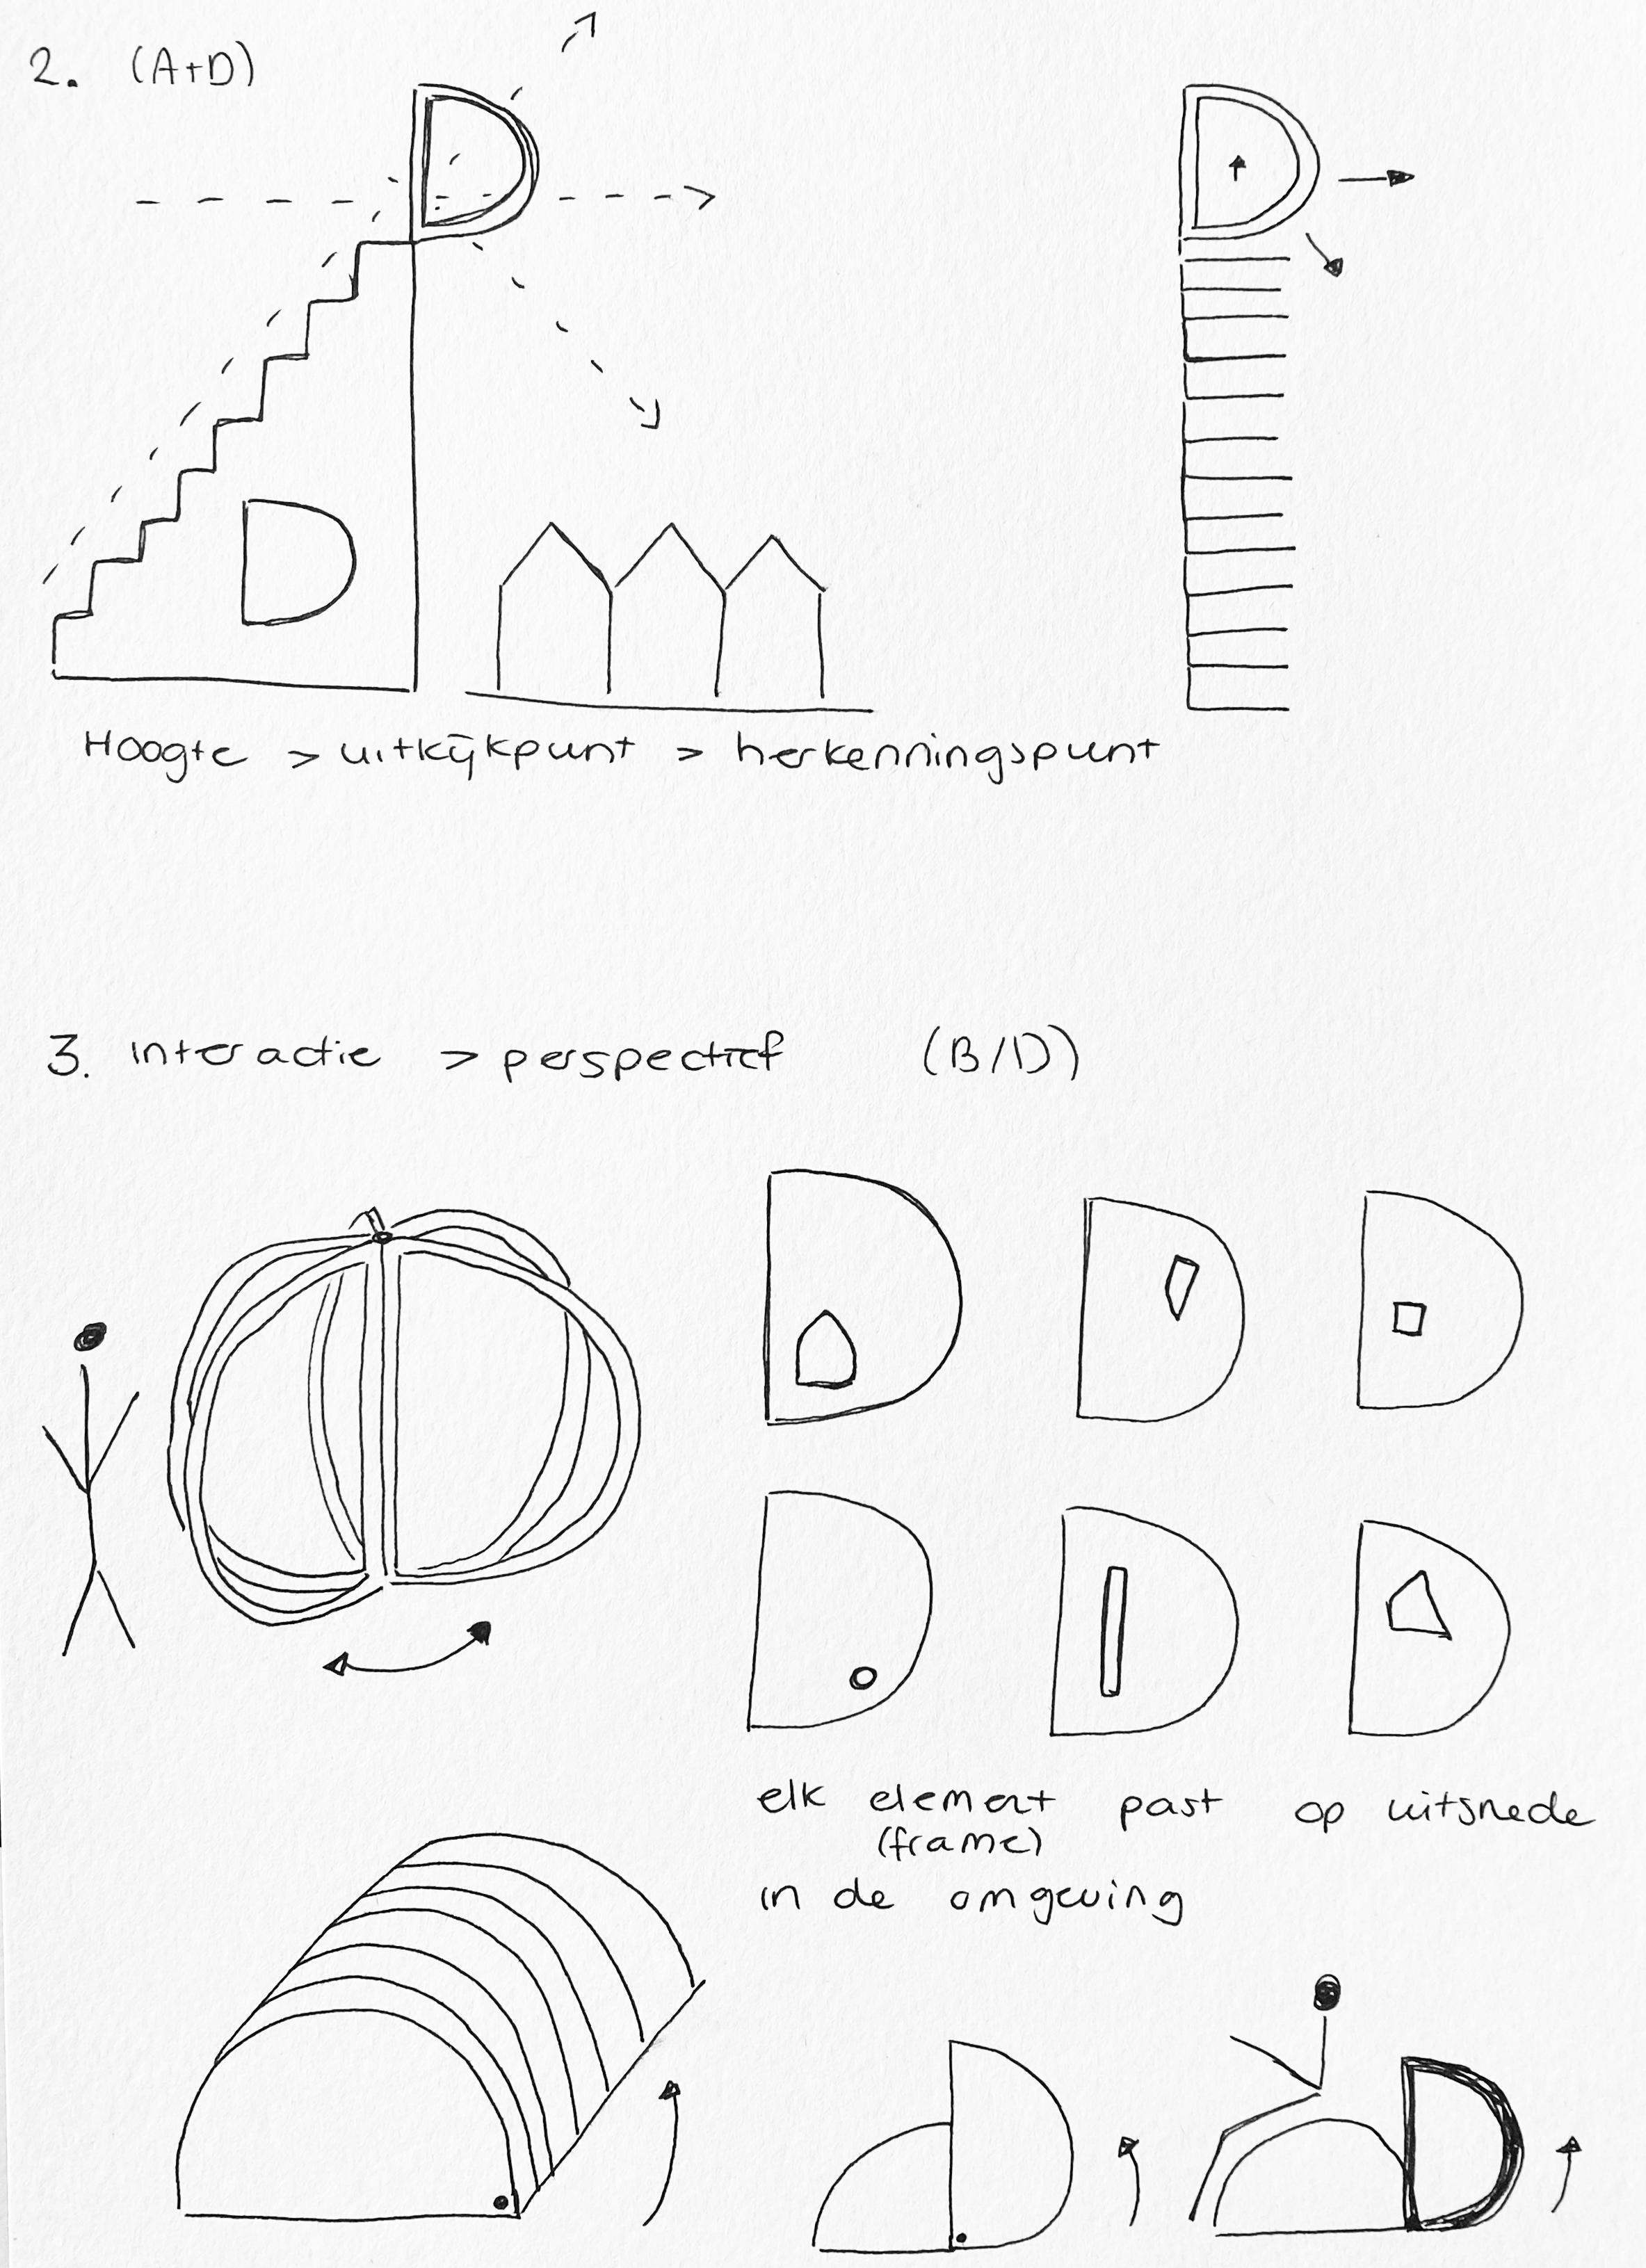 2. (A+D)
Hoogte > uitkijkpunt > herkenningspunt
3. interactie > perspectief (B/D)
elk element past op uitsnede
(frame)
in de omgeving